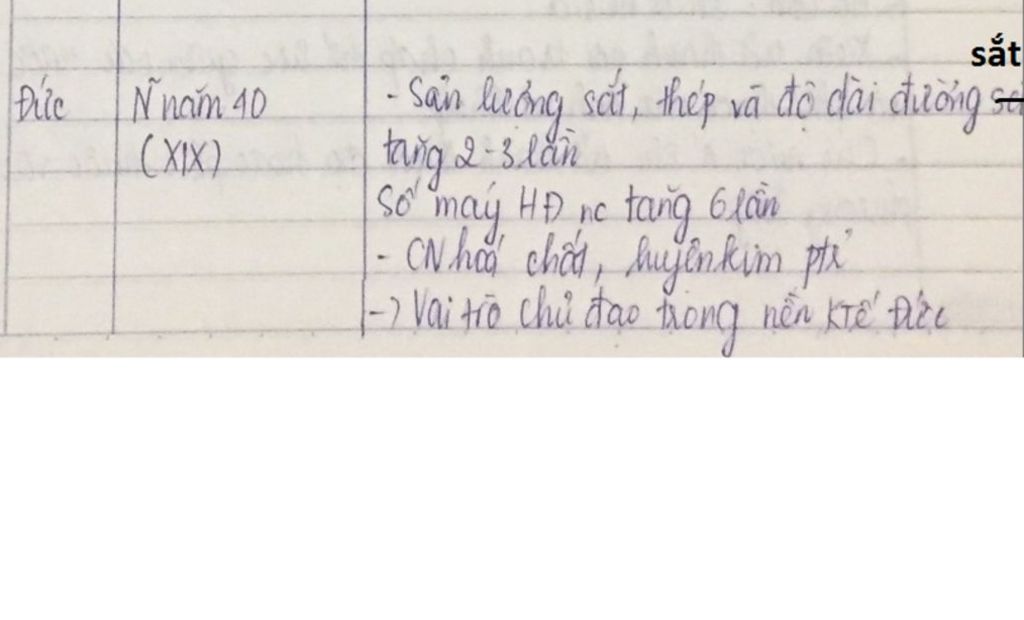 sắt
Đức Ñ năm 40 - Sản lượng sắt, thép và độ dài đường
(XIX) tăng 2-3 lần
Số máy HĐ nc tăng 6 lần
- CN hoá chất, luyện kim ptr
-> Vai trò chủ đạo trong nền KTế Đức